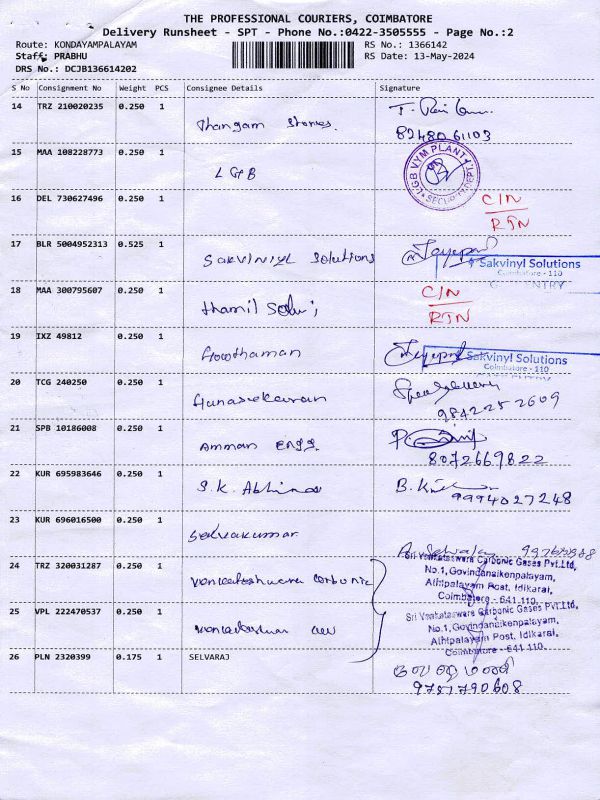 THE PROFESSIONAL COURIERS, COIMBATORE
Delivery Runsheet - SPT - Phone No.:0422-3505555 - Page No.:2
Route: KONDAYAMPALAYAM RS No.: 1366142
Staff: PRABHU RS Date: 13-May-2024
DRS No.: DCJB136614202
S No Consignment No Weight PCS Consignee Details Signature
14 TRZ 210020235 0.250 1
Thangam Stores.
82480 61103
15 MAA 108228773 0.250 1
LGB
LGB VYM PLANT
16 DEL 730627496 0.250 1 C/N
RTN
17 BLR 5004952313 0.525 1
SAKVINIYL Solutions
Sakvinyl Solutions
Coimbatore - 110
18 MAA 300795607 0.250 1 C/N
Thamil RTN
19 IXZ 49812 0.250 1
Gowthaman
Sakvinyl Solutions
Coimbatore - 110
20 TCG 240250 0.250 1
Gunasekaran
9842252609
21 SPB 10186008 0.250 1
Amman Engg
8072669822
22 KUR 695983646 0.250 1
S.K. Abhinav
9994027248
23 KUR 696016500 0.250 1
Selvakumar
24 TRZ 320031287 0.250 1
Venkateshwera Carbonic
Sri Venkateswara Carbonic Gases Pvt.Ltd,
No.1, Govindanaikenpalayam,
Athipalayam Post, Idikarai,
Coimbatore - 641 110.
25 VPL 222470537 0.250 1
Sri Venkateswara Carbonic Gases Pvt.Ltd,
No.1, Govindanaikenpalayam,
Athipalayam Post, Idikarai,
Coimbatore - 641 110.
26 PLN 2320399 0.175 1 SELVARAJ
9751790608